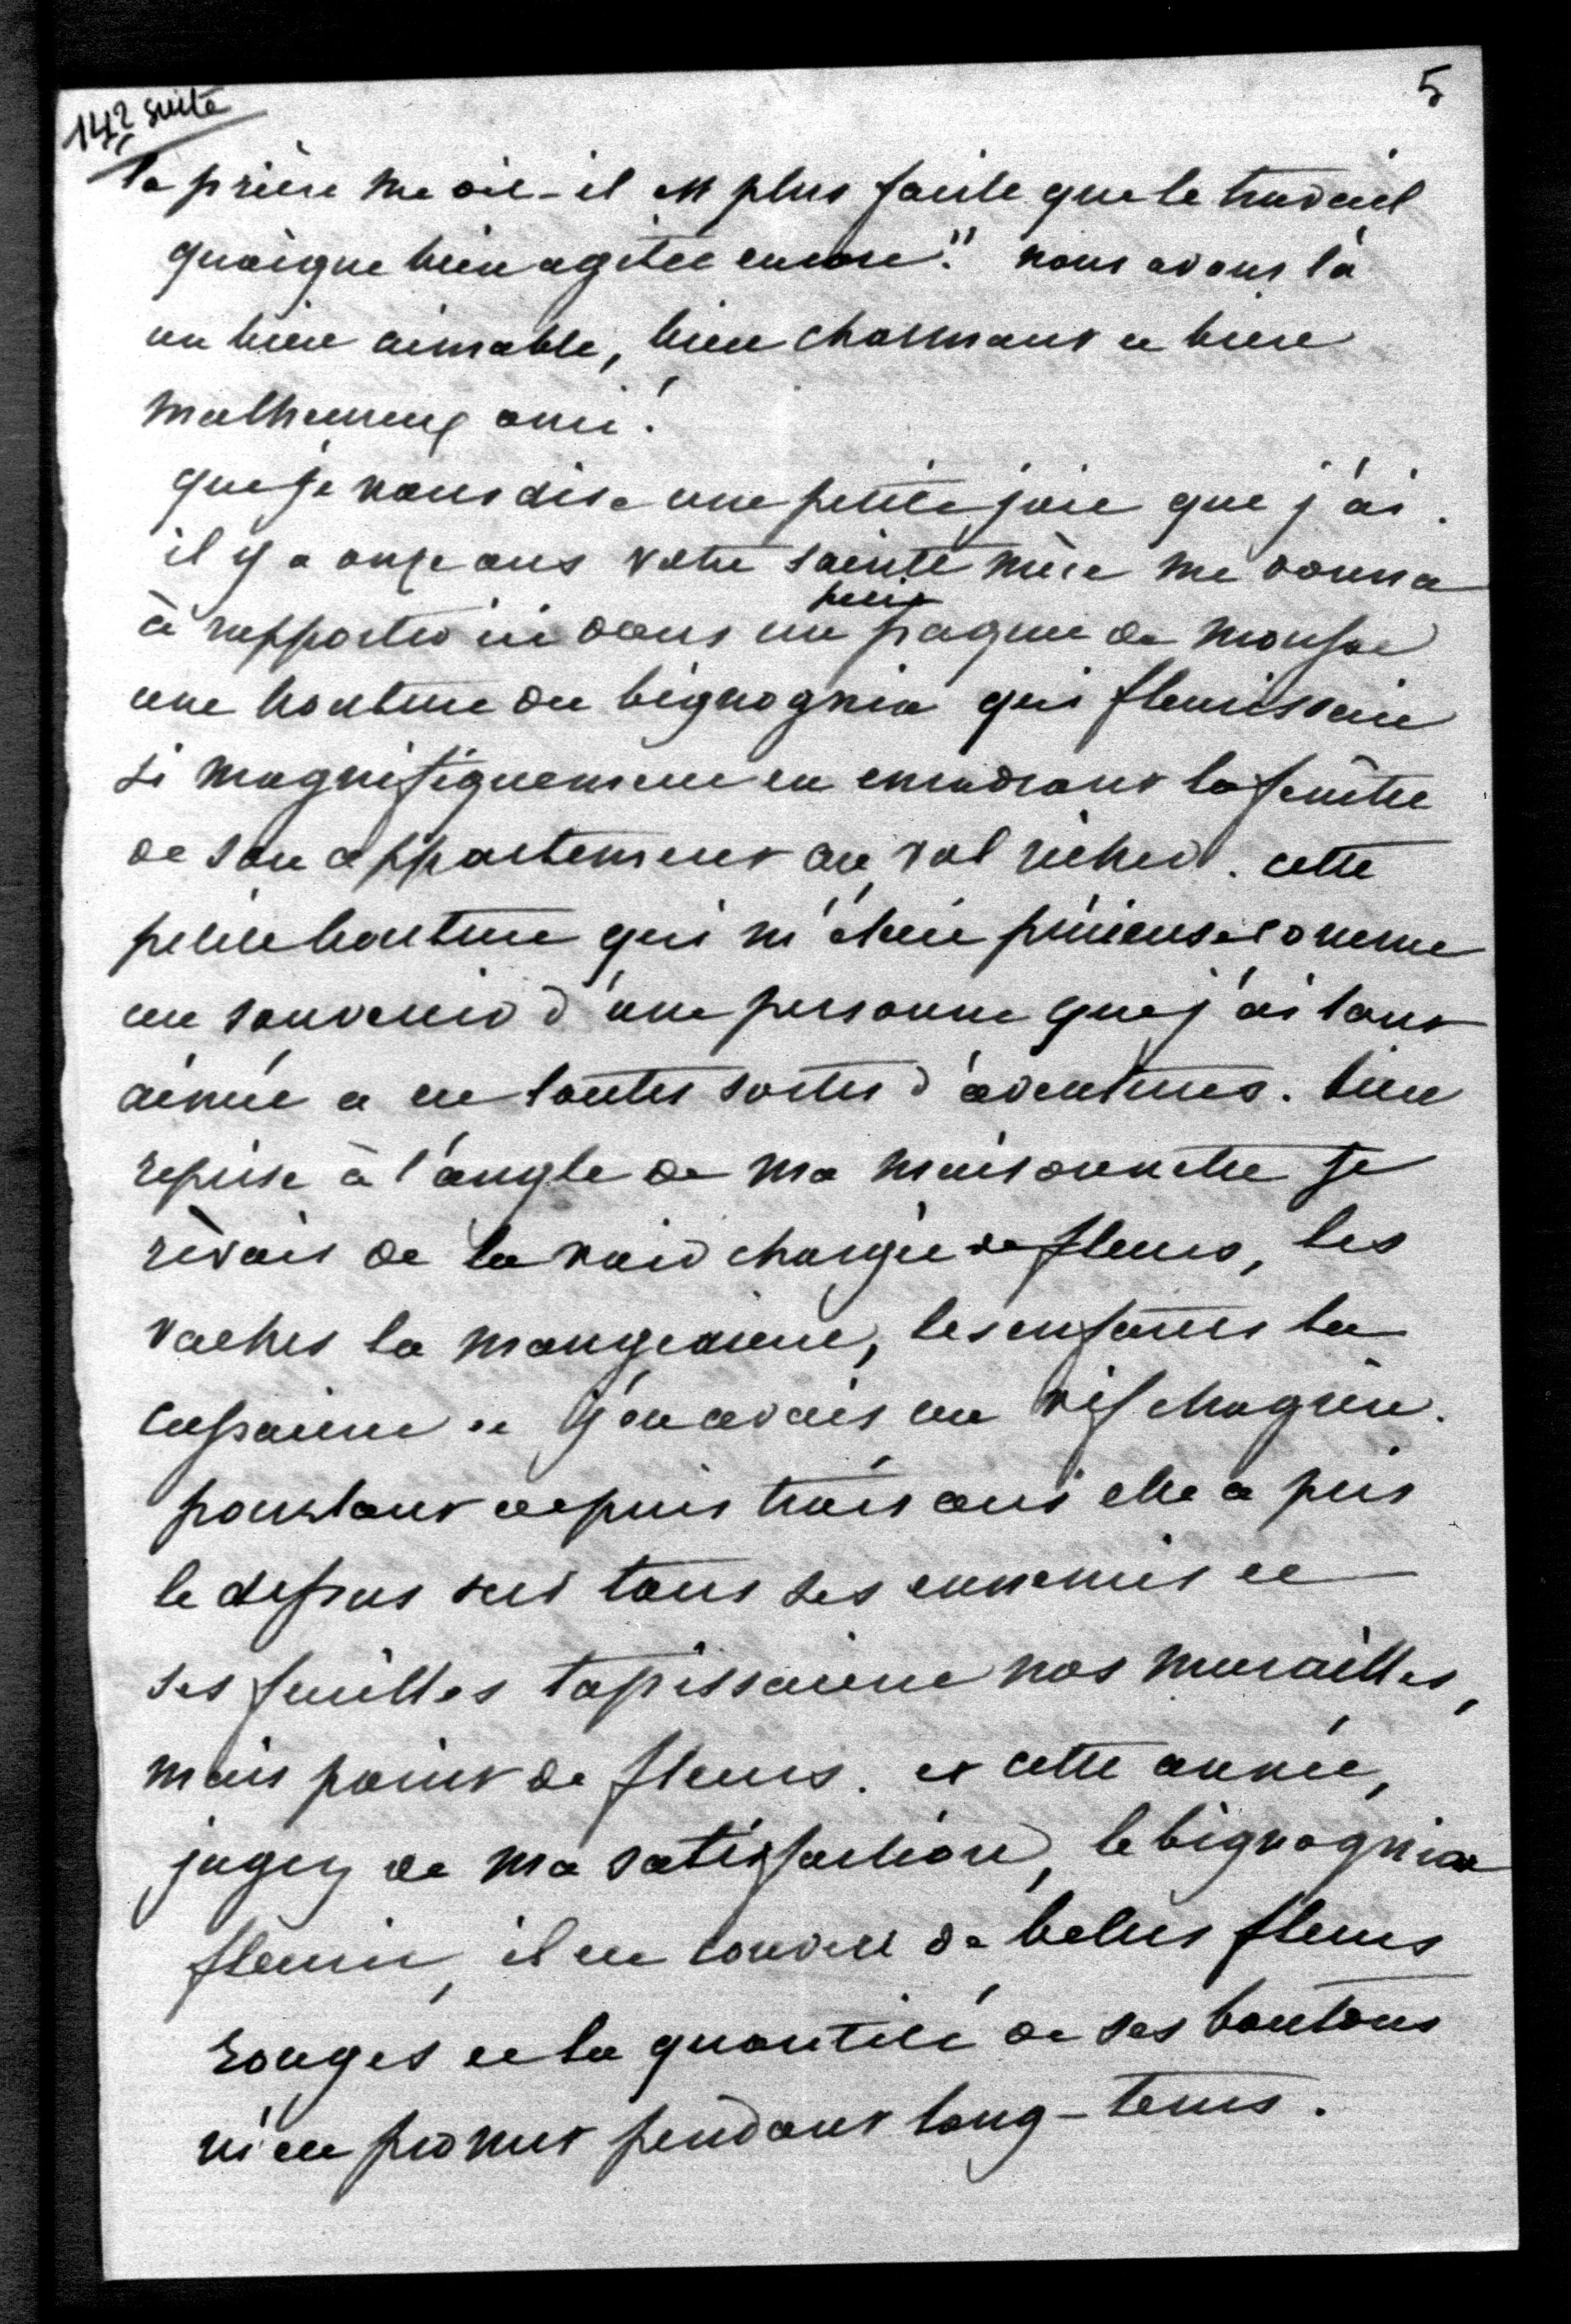 142 suite
5
la prière me dit-il est plus facile que le travail
quoique bien agitée encore." nous avons là
un bien aimable, bien charmant et bien
malheureux ami!
que je vous dise une petite joie que j'ai.
il y a onze ans votre sainte mère me donna
petit
à rapporter ici dans un paquet de mousse
une bouture du bignognia qui fleurissait
si magnifiquement en encadrant la fenêtre
de son appartement au val richer. cette
petite bouture qui m'était précieuse comme
un souvenir d'une personne que j'ai tant
aimée a eu toutes sortes d'aventures. bien
reprise à l'angle de ma maisonnette je
rêvais de la voir chargée de fleurs, les
vaches la mangeaient, les enfants la
cassaient et j'en avais un vif chagrin.
pourtant depuis trois ans elle a pris
le dessus sur tous ses ennemis et
ses feuilles tapissaient nos murailles,
mais point de fleurs. et cette année,
jugez de ma satisfaction, le bignognia
fleurit, il est couvert de belles fleurs
rouges et la quantité de ses boutons
m'en promet pendant long-tems.